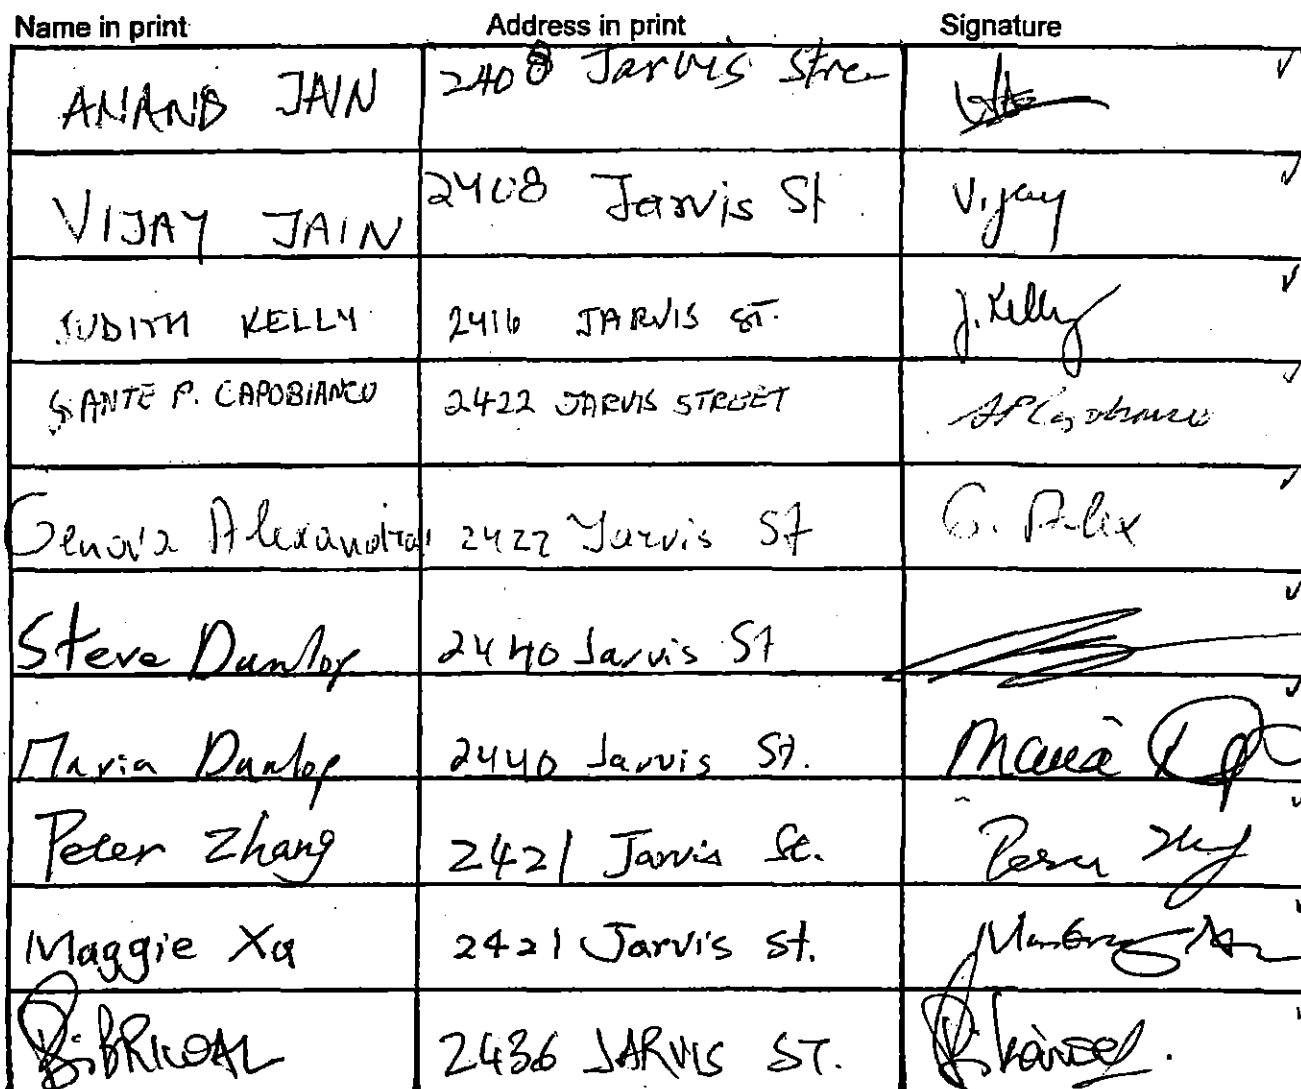 Name in print Address in print Signature
ANAND JAIN 2408 Jarvis Stree
VIJAY JAIN 2408 Jarvis St Vijay
JUDITH KELLY 2416 JARVIS ST. J. Kelly
SANTE P. CAPOBIANCO 2422 JARVIS STREET
Genova Alexandra 2422 Jarvis St G. Alex
Steve Dunlop 2440 Jarvis St
Maria Dunlop 2440 Jarvis St. Maria
Peter Zhang 2421 Jarvis St.
Maggie Xa 2421 Jarvis St.
2436 JARVIS ST.